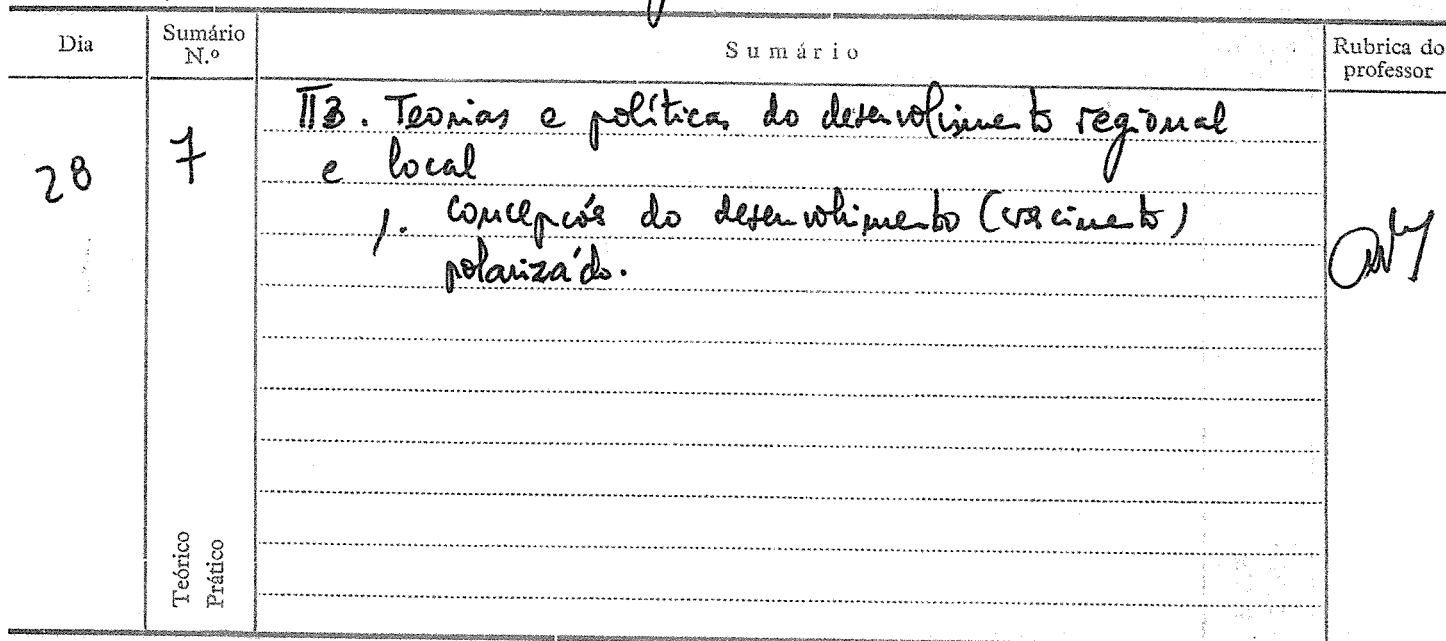 Dia
Sumário
N.º
Sumário
Rubrica do
professor
28
7
II B. Teorias e políticas do desenvolvimento regional
e local
1. concepções do desenvolvimento (crescimento)
polarizado.
Teórico
Prático